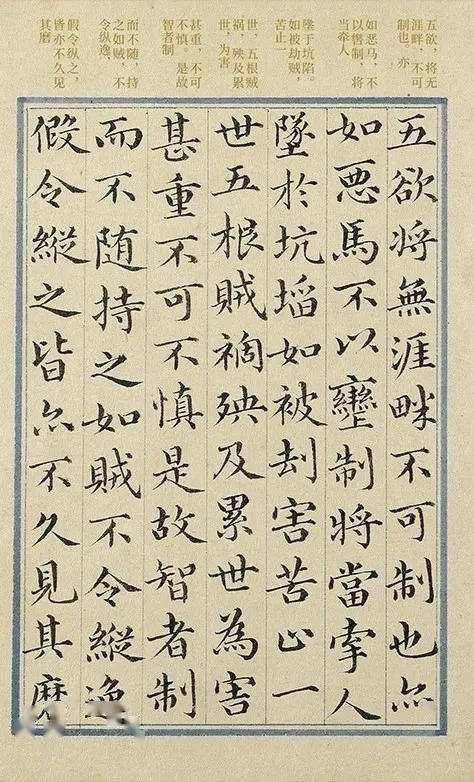 五欲，将无
涯畔，不可
制也，亦
如恶马，不
以辔制，将
当牵人
坠于坑陷。
如被劫贼，
苦止一
世，五根贼
祸，殃及累
世，为害
甚重，不可
不慎。是故
智者制
而不随，持
之如贼，不
令纵逸，
假令纵之，
皆亦不久见
其磨
五欲将無涯畔不可制也亦
如悪馬不以轡制将當牽人
墜於坑埳如被刧害苦止一
世五根賊禍殃及累世為害
甚重不可不慎是故智者制
而不随持之如賊不令縱逸
假令縱之皆亦不久見其磨